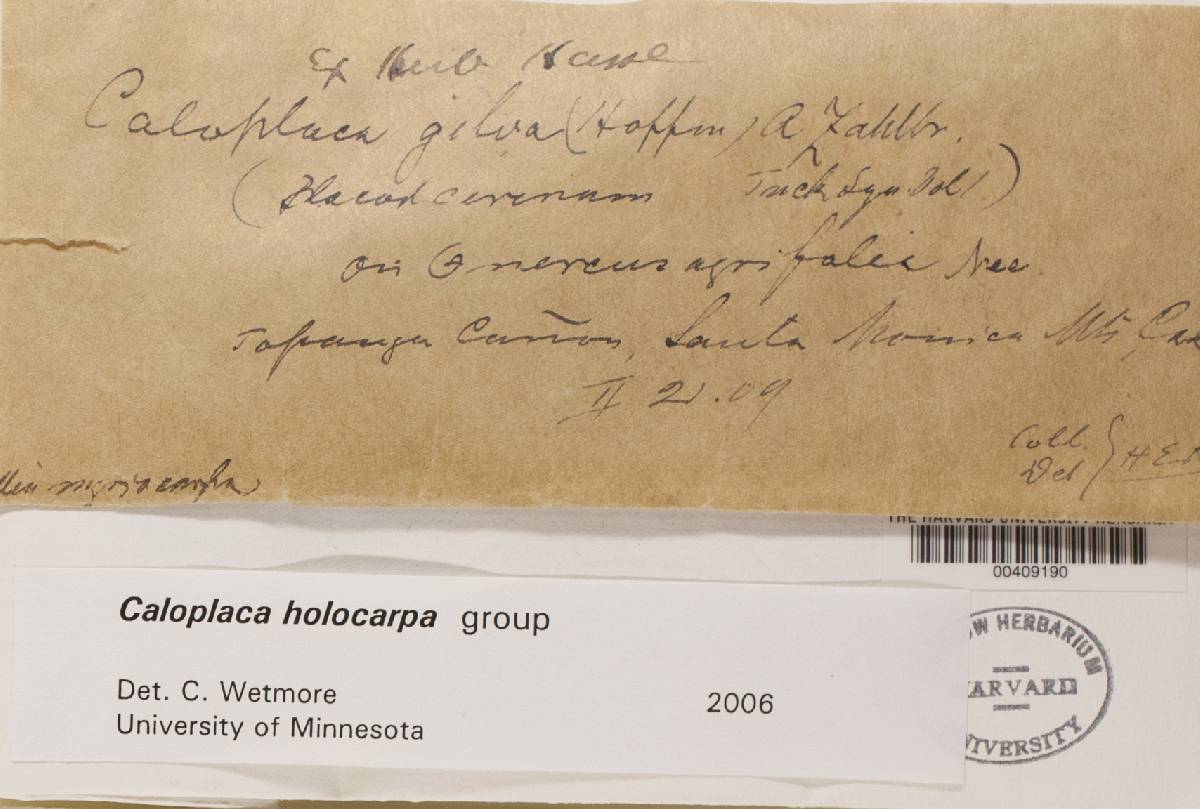 Ex Herb Hasse
Caloplaca gilva (Hoffm) A Zahlbr.
(Placod cerinum Tuck Syn Vol 1)
on Quercus agrifolia Nee
Topanga Cañon, Santa Monica Mts,
II 21.09
Coll.
Det } HE
myriocarpa
THE HARVARD UNIVERSITY HERBARIA
00409190
Caloplaca holocarpa group
Det. C. Wetmore 2006
University of Minnesota
OW HERBARIUM
HARVARD
UNIVERSITY